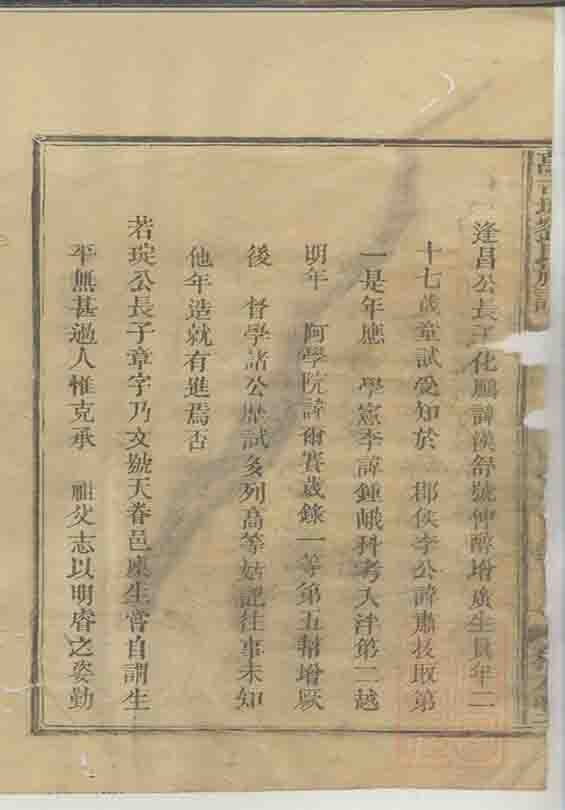 逢昌公長子化鵬諱漢舒號仲醇增廣生員年二
十七歲童試受知於 郡侯李公諱肅技取第
一是年應 學憲李諱鍾峨科考入泮第二越
明年 阿學院諱爾賽歲錄一等第五幫增厥
後 督學諸公歷試多列高等姑記往事未知
他年造就有進焉否
若琔公長子章字乃文號天眷邑庠生嘗自謂生
平無甚過人惟克承 祖父志以明睿之姿勤